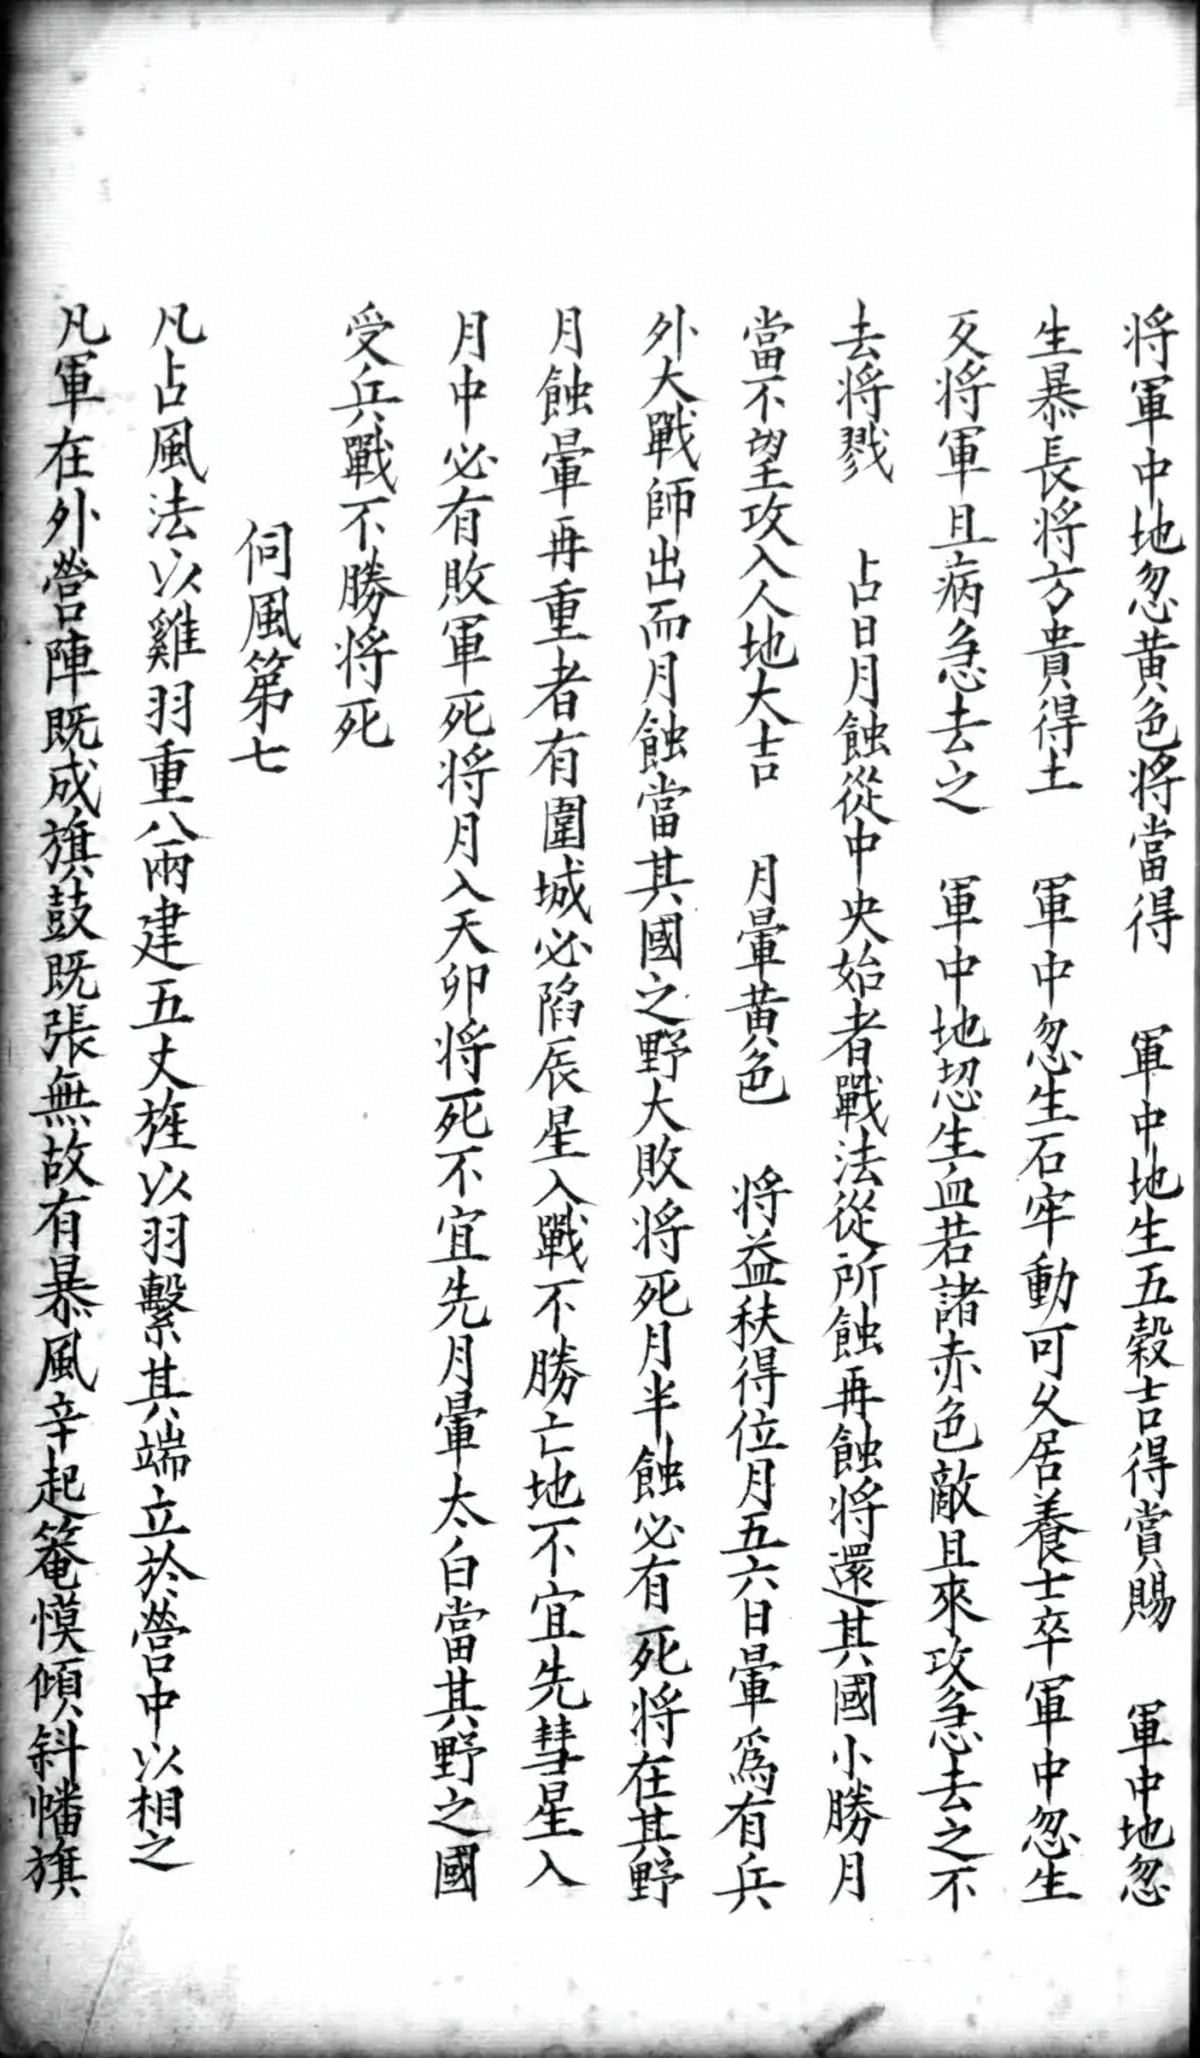 将軍中地忽黄色将當得　軍中地生五穀吉得賞賜　軍中地忽
生暴長将方貴得土　軍中忽生石牢動可久居養士卒軍中忽生
叐将軍且病急去之　軍中地忽生血若諸赤色敵且來攻急去之不
去将戮　占日月蝕從中央始者戰法從所蝕再蝕将還其國小勝月
當不望攻入人地大吉　月暈黄色　将益秩得位月五六日暈爲有兵
外大戰師出而月蝕當其國之野大敗将死月半蝕必有死将在其野
月蝕暈再重者有圍城必陷辰星入戰不勝亡地不宜先彗星入
月中必有敗軍死将月入天卯将死不宜先月暈太白當其野之國
受兵戰不勝将死
伺風第七
凡占風法以雞羽重八兩建五丈旌以羽繫其端立於營中以相之
凡軍在外營陣既成旗鼓既張無故有暴風辛起篭慔傾斜幡旗